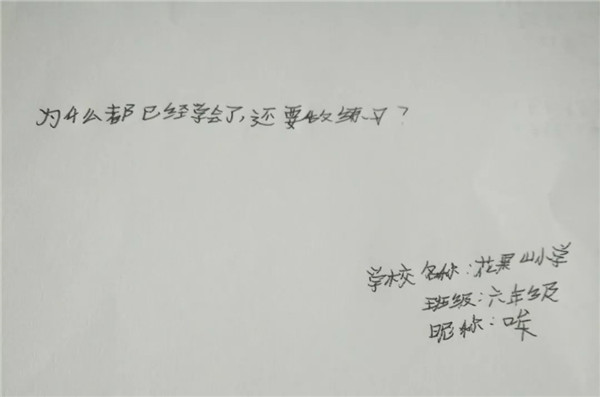 为什么都已经学会了,还要做练习?
学校名称:花果山小学
班级:六年级
昵称:唉